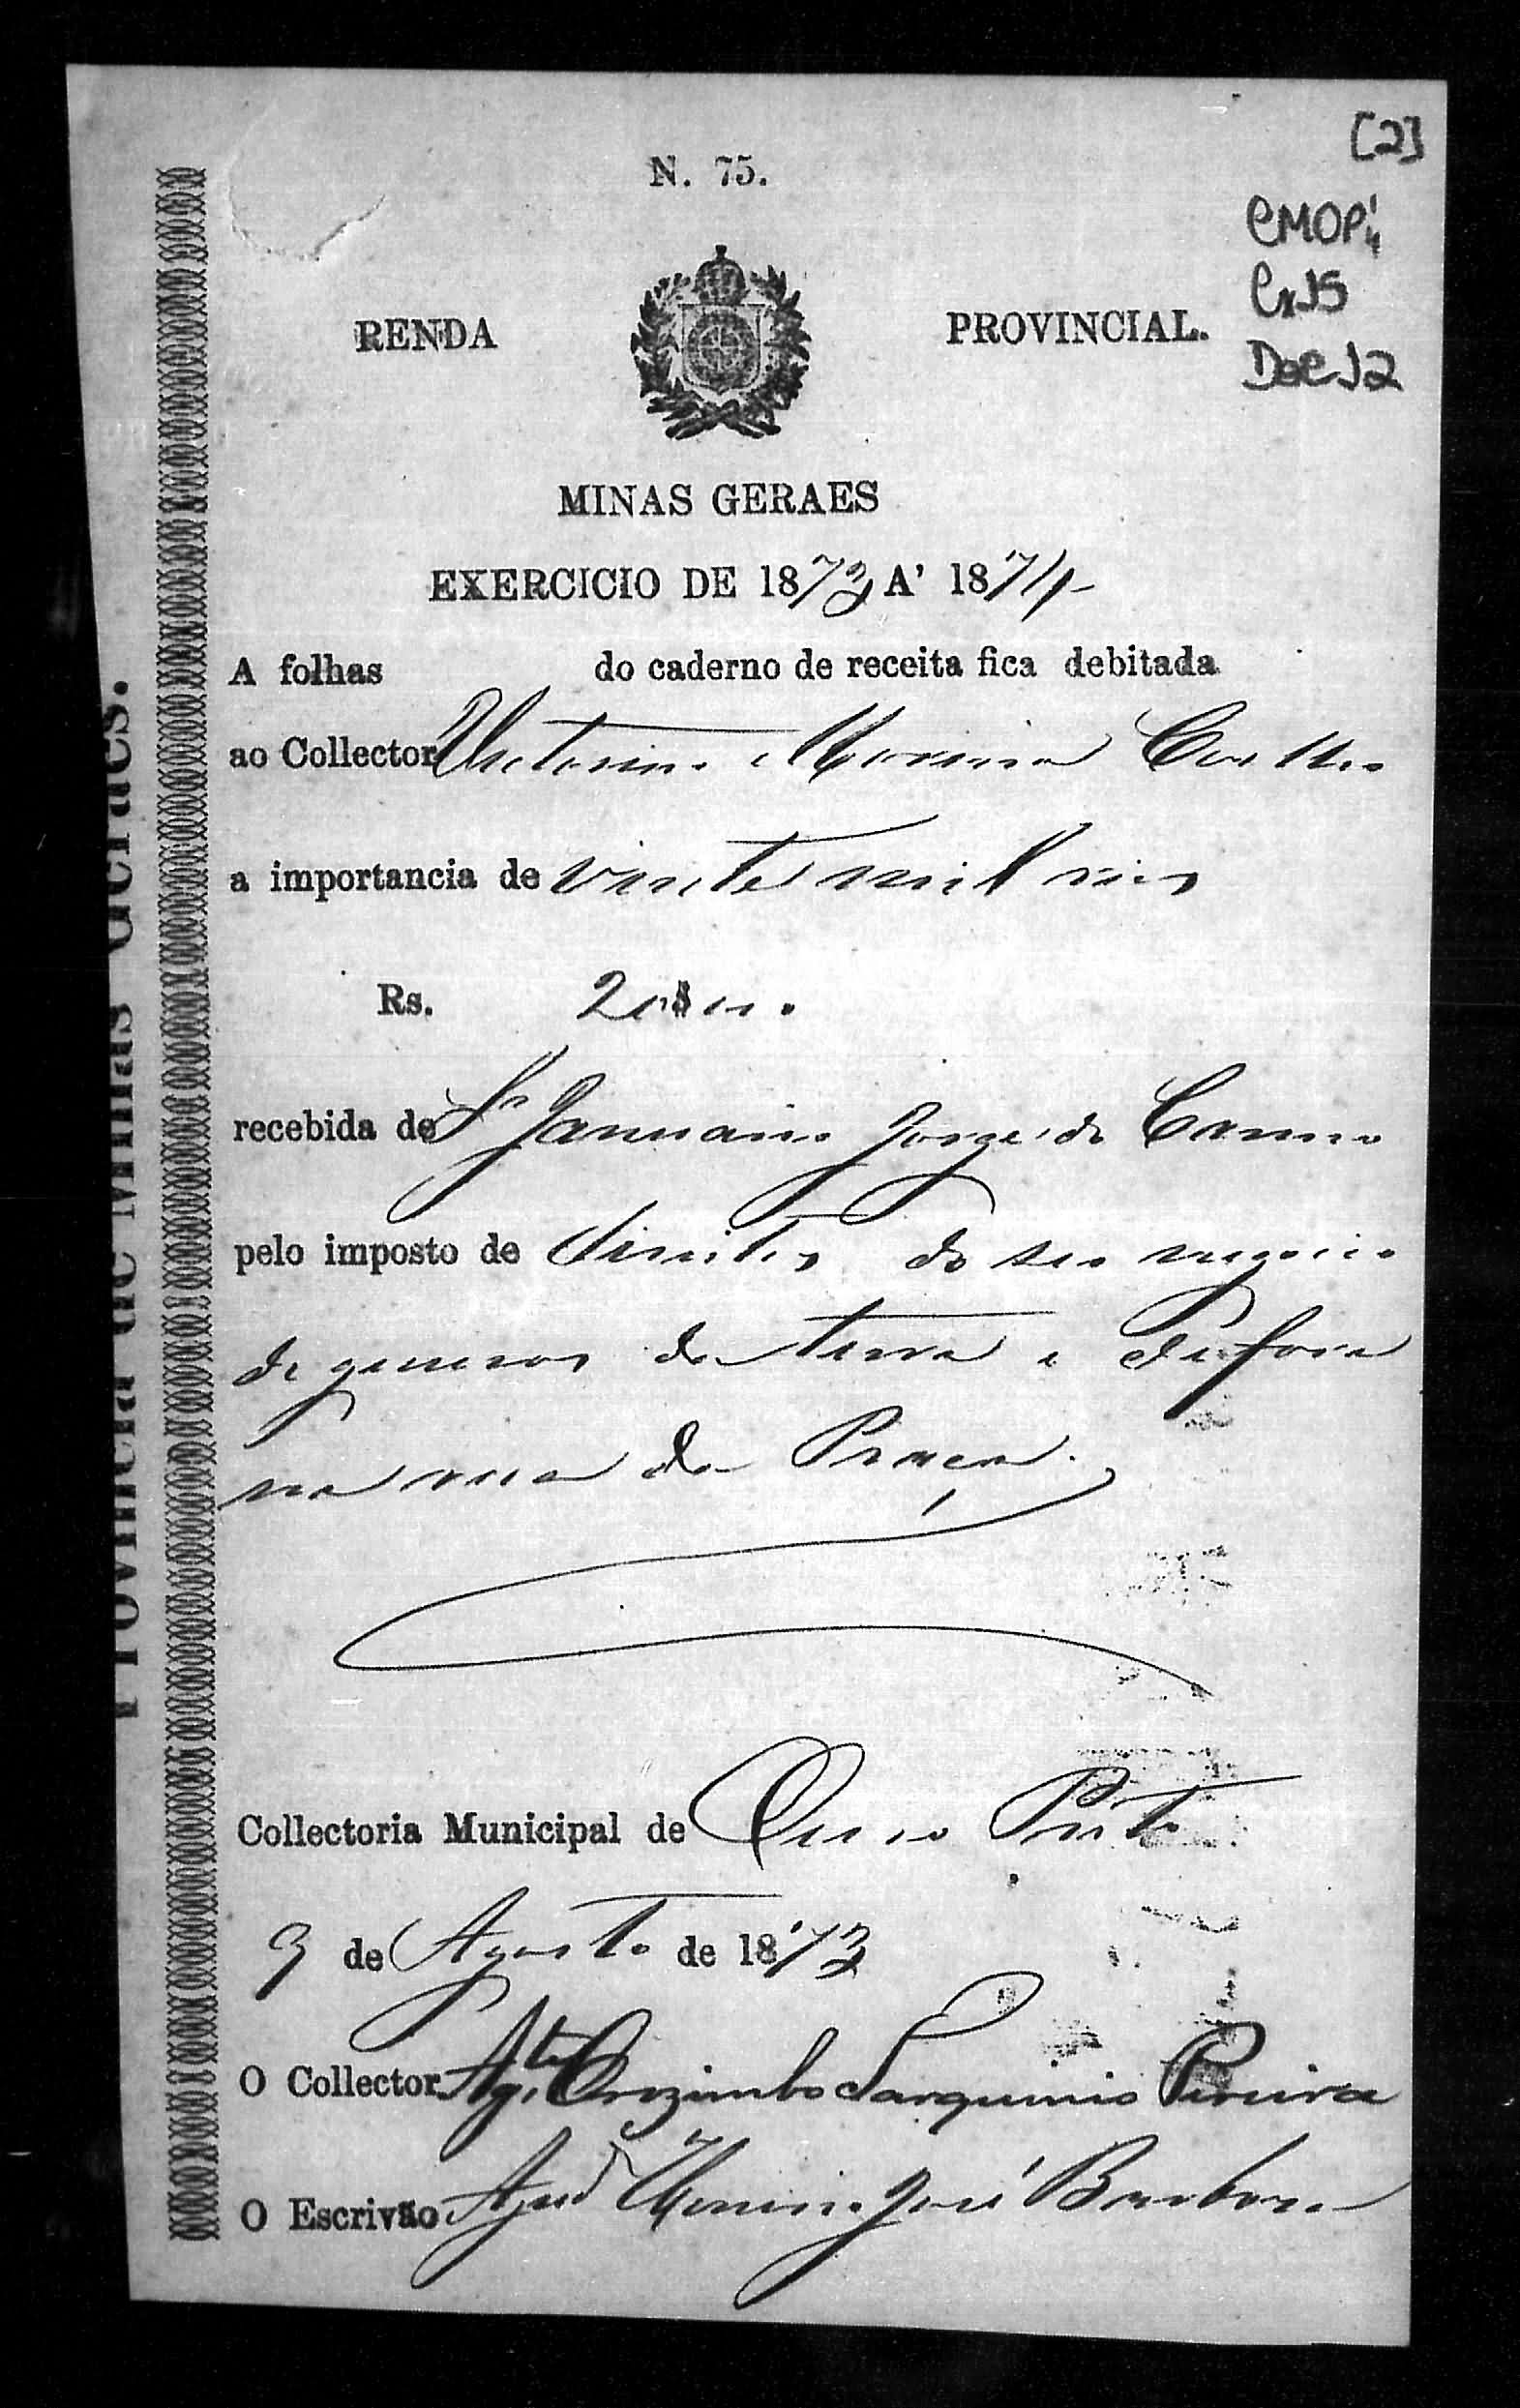 [2]
N. 75.
CMOP
Cx 15
Doc 12
RENDA PROVINCIAL.
MINAS GERAES
EXERCICIO DE 1873 A' 1874
A folhas do caderno de receita fica debitada
ao Collector Victorino Moreira Coelho
a importancia de vinte mil reis
Rs. 20$000.
recebida de Sr Januario Jorge do Carmo
pelo imposto de direitos do seo negocio
de generos da terra e de fora
na rua da Praça.
Collectoria Municipal de Ouro Preto
9 de Agosto de 1873
O Collector Agte Orozimbo Tarquinio Pereira
O Escrivão José Barbosa
Provincia de Minas Geraes.